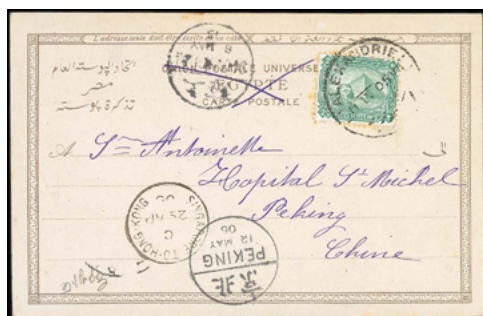 L'adresse seule doit être écrite de ce côté
اتحاد البوستة العام
مصر
تذكرة بوستة
UNION POSTALE UNIVERSELLE
EGYPTE
CARTE POSTALE
ALEXANDRIE
A Sr Antoinette
Hopital St Michel
Peking
Chine
SINGAPORE TO HONG KONG
C
25 AP
05
PEKING
12 MAY
05
北京